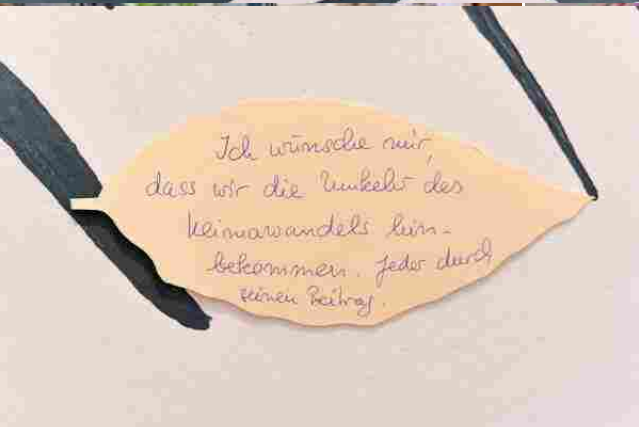 Ich wünsche mir,
dass wir die Umkehr des
Klimawandels hin-
bekommen. Jeder durch
seinen Beitrag.